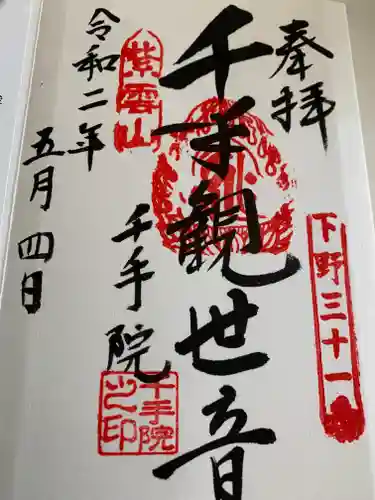 奉拝
下野三十一
千手観世音
紫雲山
千手院
千手院之印
令和二年
五月四日